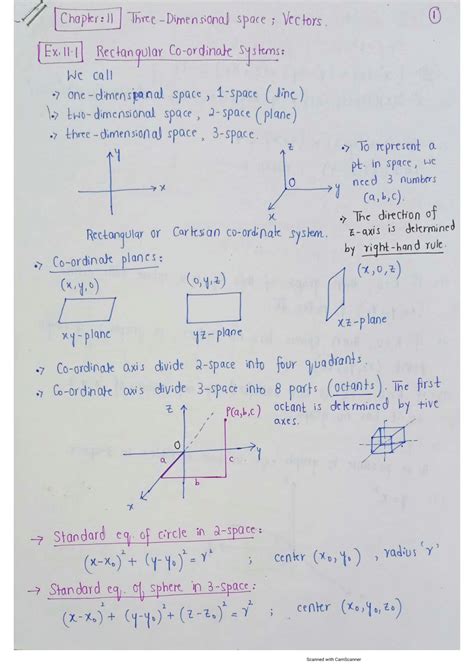 Chapter: 11 Three-Dimensional space ; Vectors. 1
Ex. 11.1 Rectangular Co-ordinate Systems:
We call
one-dimensional space, 1-space (line)
two-dimensional space, 2-space (plane)
three-dimensional space, 3-space.
y
x
z
O
y
x
To represent a
pt. in space, we
need 3 numbers
(a,b,c).
The direction of
z-axis is determined
by right-hand rule.
Rectangular or Cartesian co-ordinate system.
Co-ordinate planes:
(x,y,0) (0,y,z) (x,0,z)
xy-plane yz-plane xz-plane
Co-ordinate axis divide 2-space into four quadrants.
Co-ordinate axis divide 3-space into 8 parts (octants). The first
octant is determined by +ive
axes.
z
P(a,b,c)
O
y
a
c
b
x
→ Standard eq. of circle in 2-space:
(x-x₀)² + (y-y₀)² = r² ; center (x₀,y₀) , radius 'r'
→ Standard eq. of sphere in 3-space:
(x-x₀)² + (y-y₀)² + (z-z₀)² = r² ; center (x₀,y₀,z₀)
Scanned with CamScanner